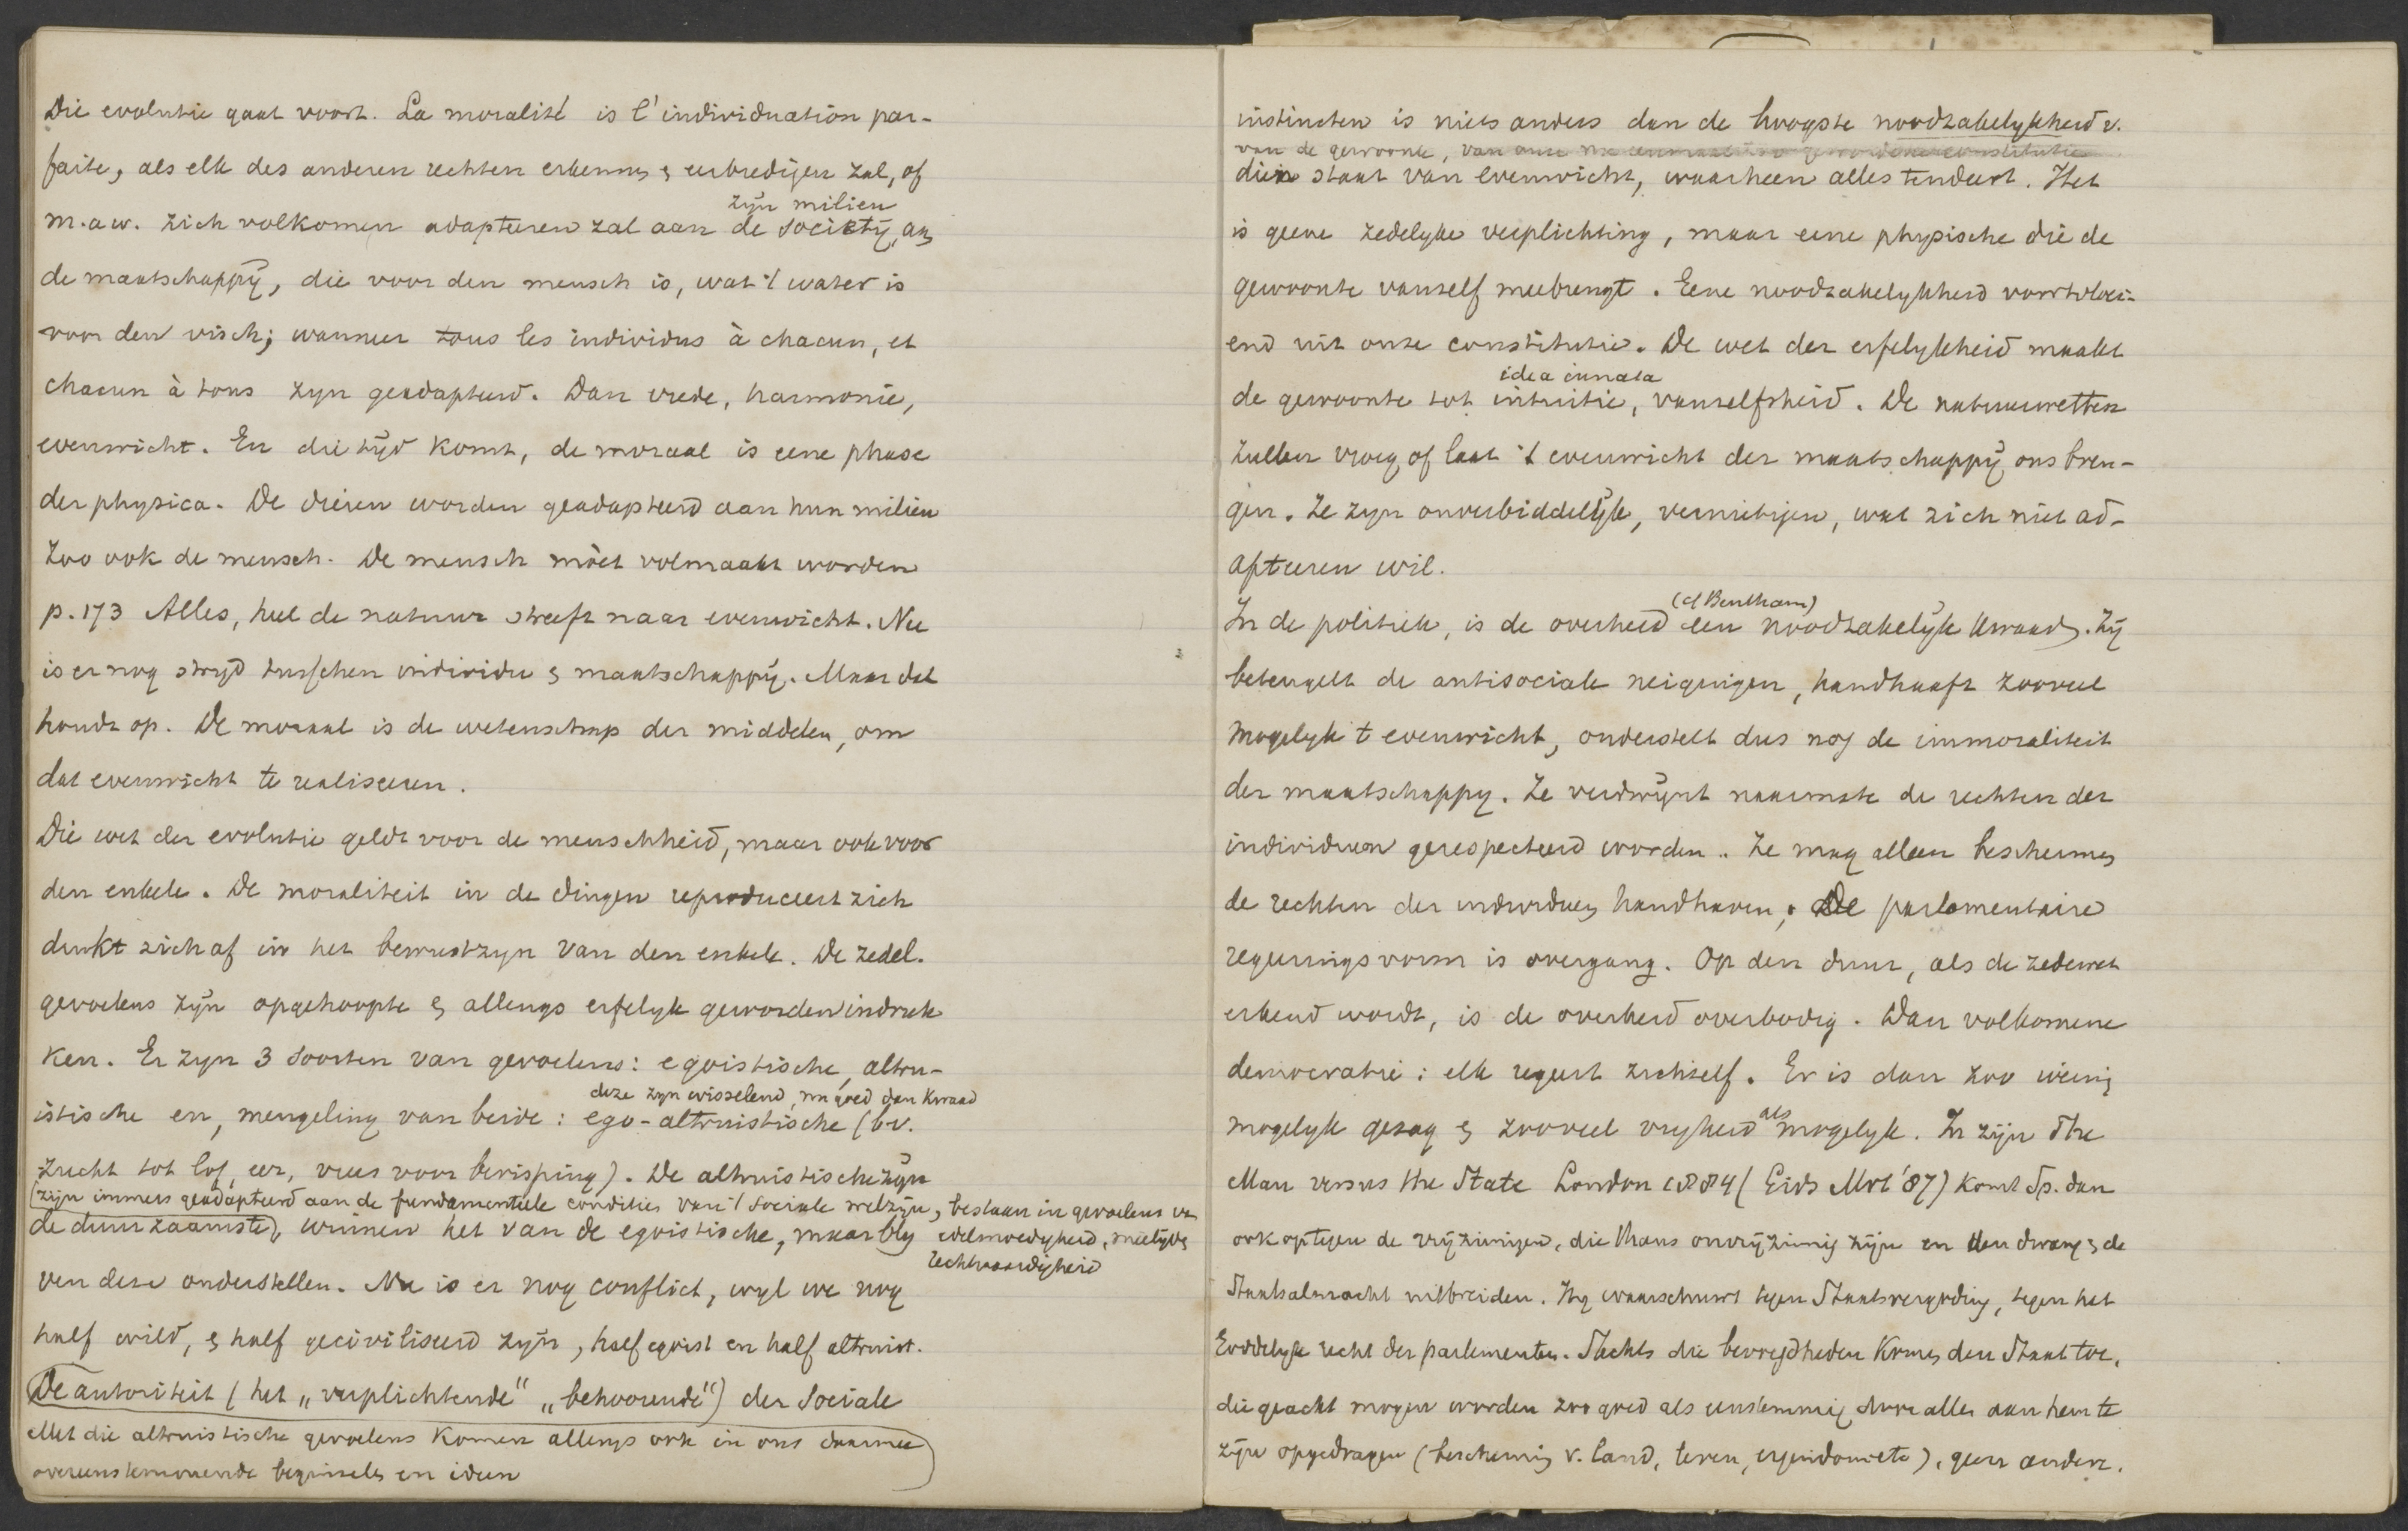 Die evolutie gaat voort. La moralité is l'individuation par-
faite, als elk des anderen rechten erkennen & eerbiedigen zal, of
zijn milieu
m.a.w. zich volkomen adapteeren zal aan de society, aan
de maatschappij, die voor den mensch is, wat 't water is
voor den visch; wanneer tous les individus à chacun, et
chacun à tous zyn geadapteerd. Dan vrede, harmonie,
evenwicht. En die tijd komt, de moraal is eene phase
der physica. De dieren worden geadapteerd aan hun milieu
zoo ook de mensch. De mensch móet volmaakt worden
p. 173 Alles, heel de natuur streeft naar evenwicht. Nu
is er nog stryd tusschen individu & maatschappij. Maar dat
houdt op. De moraal is de wetenschap der middelen, om
dat evenwicht te realiseeren.
Die wet der evolutie geldt voor de menschheid, maar ook voor
den enkele. De moraliteit in de dingen reproduceert zich
drukt zich af in het bewustzyn van den enkele. De zedel.
gevoelens zijn opgehoopte & allengs erfelyk geworden indruk
ken. Er zyn 3 soorten van gevoelens: egoistische, altru-
deze zyn wisselend, nu goed dan kwaad
istische en, mengeling van beide: ego-altruistische (bv.
zucht tot lof, eer, vrees voor berisping). De altruistische zijn
(zijn immers geadapteerd aan de fundamenteele condities van 't sociale welzijn, bestaan in gevoelens van
de duurzaamste), winnen het van de egoistische, maar bly edelmoedigheid, medelijden
rechtvaardigheid
ven deze onderstellen. Nu is er nog conflict, wyl we nog
half wild, & half geciviliseerd zijn, half egoist en half altruist.
De autoriteit (het „verplichtende" „behoorende") der sociale
Met die altruistische gevoelens komen allengs ook in ons daarmee
overeenstemmende beginselen en ideen
instincten is niets anders dan de hoogste noodzakelykheid v.
van de gewoonte, van onze
dien staat van evenwicht, waarheen alles tendeert. Het
is geene zedelyke verplichting, maar eene physische die de
gewoonte vanself meebrengt. Eene noodzakelykheid voortvloei-
end uit onze constitutie. De wet der erfelykheid maakt
idea innata
de gewoonte tot intuitie, vanselfsheid. De natuurwetten
zullen vroeg of laat 't evenwicht der maatschappij ons bren-
gen. Ze zyn onverbiddelijk, vernietigen, wat zich niet ad-
apteeren wil.
(cf Bentham)
In de politiek, is de overheid een noodzakelyk kwaad. Zij
beteugelt de antisociale neigingen, handhaaft zooveel
mogelyk 't evenwicht, onderstelt dus nog de immoraliteit
der maatschappy. Ze verdwijnt naarmate de rechten der
individuen gerespecteerd worden. Ze mag alleen beschermen
de rechten der individuen handhaven; De parlementaire
regeeringsvorm is overgang. Op den duur, als de zedewet
erkend wordt, is de overheid overbodig. Dan volkomene
democratie: elk regeert zichself. Er is dan zoo weinig
mogelyk gezag & zooveel vryheid als mogelyk. In zijn The
Man versus the State London 1884 (Gids Mrt '87) komt Sp. dan
ook op tegen de vrijzinnigen, die thans onvrijzinnig zijn en den dwang & de
Staatsalmacht uitbreiden. Hy waarschuwt tegen Staatsvergoding, tegen het
Goddelyk recht der parlementen. Slechts die bevoegdheden komen den Staat toe,
die geacht mogen worden zoo goed als eenstemmig door allen aan hem te
zijn opgedragen (bescherming v. land, leven, eigendom etc), geen andere.